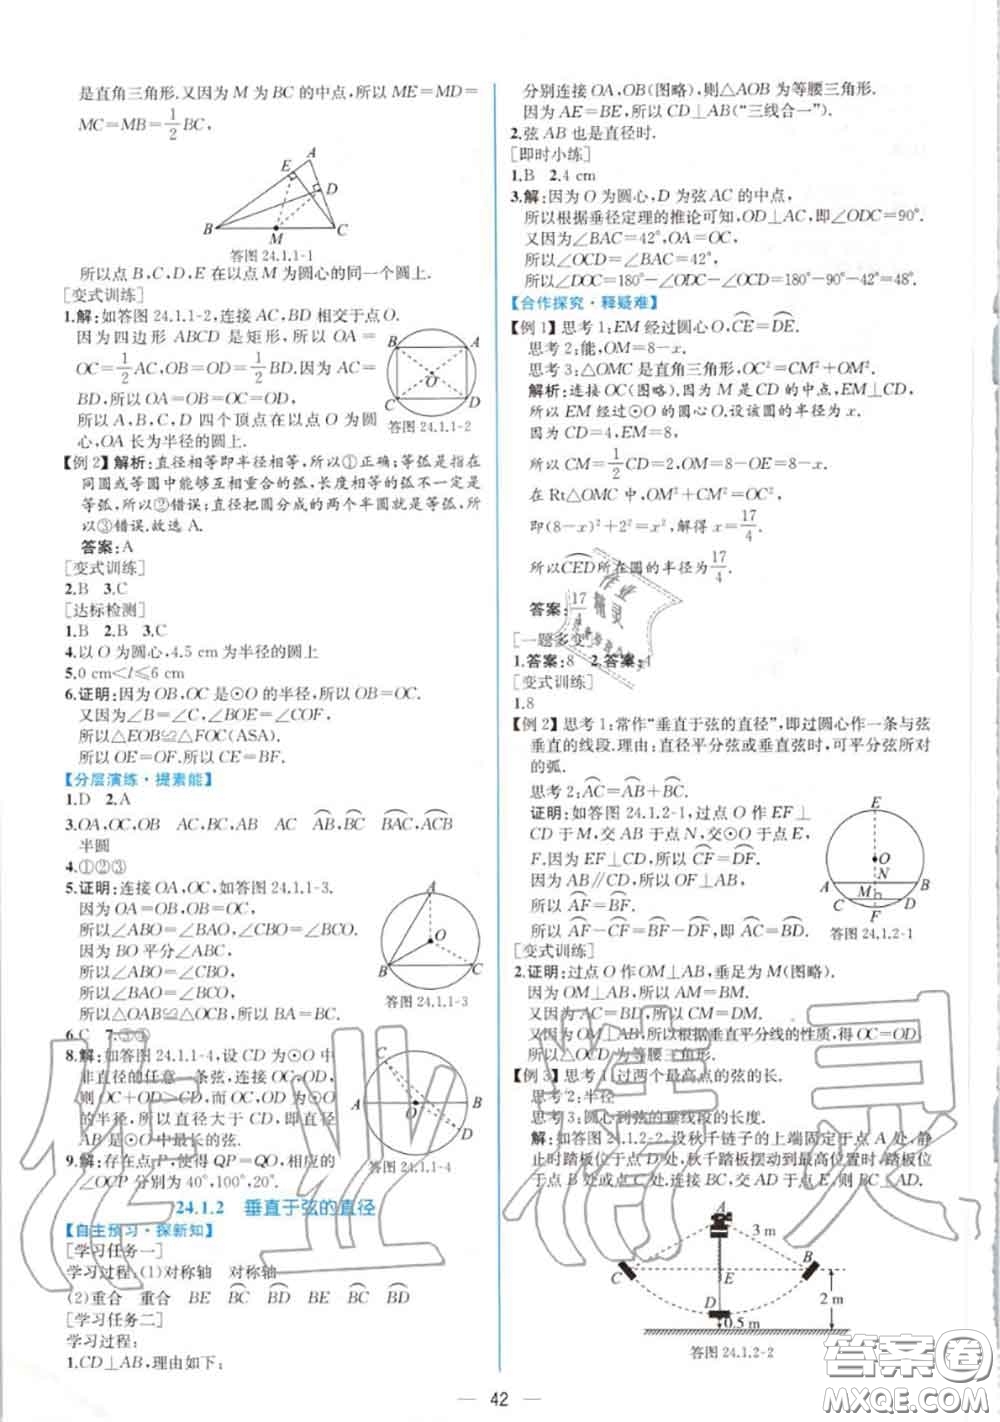 是直角三角形.又因为 M 为 BC 的中点,所以 ME=MD=
MC=MB=1/2 BC,
A
E
D
B
M
C
答图 24.1.1-1
所以点 B,C,D,E 在以点 M 为圆心的同一个圆上.
[变式训练]
1.解:如答图 24.1.1-2,连接 AC,BD 相交于点 O.
因为四边形 ABCD 是矩形,所以 OA=
OC=1/2 AC,OB=OD=1/2 BD.又因为 AC=
BD,所以 OA=OB=OC=OD.
所以 A,B,C,D 四个顶点在以点 O 为圆
心,OA 长为半径的圆上.
B
A
O
C
D
答图 24.1.1-2
【例 2】解析:直径相等即半径相等,所以①正确;等弧是指在
同圆或等圆中能够互相重合的弧,长度相等的弧不一定是
等弧,所以②错误;直径把圆分成的两个半圆就是等弧,所
以③错误.故选 A.
答案:A
[变式训练]
2.B 3.C
[达标检测]
1.B 2.B 3.C
4.以 O 为圆心,4.5 cm 为半径的圆上
5.0 cm<l≤6 cm
6.证明:因为 OB,OC 是⊙O 的半径,所以 OB=OC.
又因为∠B=∠C,∠BOE=∠COF,
所以△EOB≌△FOC(ASA).
所以 OE=OF.所以 CE=BF.
【分层演练·提素能】
1.D 2.A
3.OA,OC,OB AC,BC,AB AC ⌒AB,⌒BC ⌒BAC,⌒ACB
半圆
4.①②③
5.证明:连接 OA,OC,如答图 24.1.1-3.
因为 OA=OB,OB=OC,
所以∠ABO=∠BAO,∠CBO=∠BCO.
因为 BO 平分∠ABC,
所以∠ABO=∠CBO.
所以∠BAO=∠BCO.
所以△OAB≌△OCB.所以 BA=BC.
A
O
B
C
答图 24.1.1-3
6.C 7.③③
8.解:如答图 24.1.1-4,设 CD 为⊙O 中
非直径的任意一条弦,连接 OC,OD,
则 OC+OD>CD,而 OC,OD 是⊙O
的半径,所以直径大于 CD,即直径
AB 是⊙O 中最长的弦.
C
A
O
B
D
答图 24.1.1-4
9.解:存在点 P,使得 QP=QO,相应的
∠OCP 分别为 40°,100°,20°.
24.1.2 垂直于弦的直径
【自主预习·探新知】
[学习任务一]
学习过程:(1)对称轴 对称轴
(2)重合 重合 BE ⌒BC ⌒BD BE ⌒BC ⌒BD
[学习任务二]
学习过程:
1.CD⊥AB,理由如下:
分别连接 OA,OB(图略),则△AOB 为等腰三角形.
因为 AE=BE,所以 CD⊥AB(“三线合一”).
2.弦 AB 也是直径时.
[即时小练]
1.B 2.4 cm
3.解:因为 O 为圆心,D 为弦 AC 的中点,
所以根据垂径定理的推论可知,OD⊥AC,即∠ODC=90°.
又因为∠BAC=42°,OA=OC,
所以∠OCD=∠BAC=42°,
所以∠DOC=180°-∠ODC-∠OCD=180°-90°-42°=48°.
【合作探究·释疑难】
【例 1】思考 1:EM 经过圆心 O,⌒CE=⌒DE.
思考 2:能,OM=8-x.
思考 3:△OMC 是直角三角形,OC²=CM²+OM².
解析:连接 OC(图略).因为 M 是 CD 的中点,EM⊥CD,
所以 EM 经过⊙O 的圆心 O.设该圆的半径为 x.
因为 CD=4,EM=8,
所以 CM=1/2 CD=2,OM=8-OE=8-x.
在 Rt△OMC 中,OM²+CM²=OC²,
即(8-x)²+2²=x²,解得 x=17/4.
所以⌒CED所在圆的半径为17/4.
答案:17/4
[一题多变]
1.答案:8 2.答案:4
[变式训练]
1.8
【例 2】思考 1:常作“垂直于弦的直径”,即过圆心作一条与弦
垂直的线段.理由:直径平分弦或垂直弦时,可平分弦所对
的弧.
思考 2:⌒AC=⌒AB+⌒BC.
证明:如答图 24.1.2-1,过点 O 作 EF⊥
CD 于 M,交 AB 于点 N,交⊙O 于点 E,
F.因为 EF⊥CD,所以⌒CF=⌒DF.
因为 AB∥CD,所以 OF⊥AB.
所以⌒AF=⌒BF.
所以⌒AF-⌒CF=⌒BF-⌒DF,即⌒AC=⌒BD.
E
O
N
A
B
M
C
D
F
答图 24.1.2-1
[变式训练]
2.证明:过点 O 作 OM⊥AB,垂足为 M(图略).
因为 OM⊥AB,所以 AM=BM.
因为 AC=BD,所以 CM=DM.
又因为 OM⊥AB,所以根据垂直平分线的性质,得 OC=OD.
所以△OCD 为等腰三角形.
【例 3】思考 1:过两个最高点的弦的长.
思考 2:半径
思考 3:圆心到弦的垂线段的长度.
解:如答图 24.1.2-2,设秋千链子的上端固定于点 A 处,静
止时踏板位于点 D 处,秋千踏板摆动到最高位置时,踏板位
于点 B,C 处,连接 AD,交 BC 于点 E,则 BC⊥AD.
A
3 m
C
B
E
D
0.5 m
2 m
答图 24.1.2-2
42
作业精灵
作业
精灵
答案圈
MXQE.COM